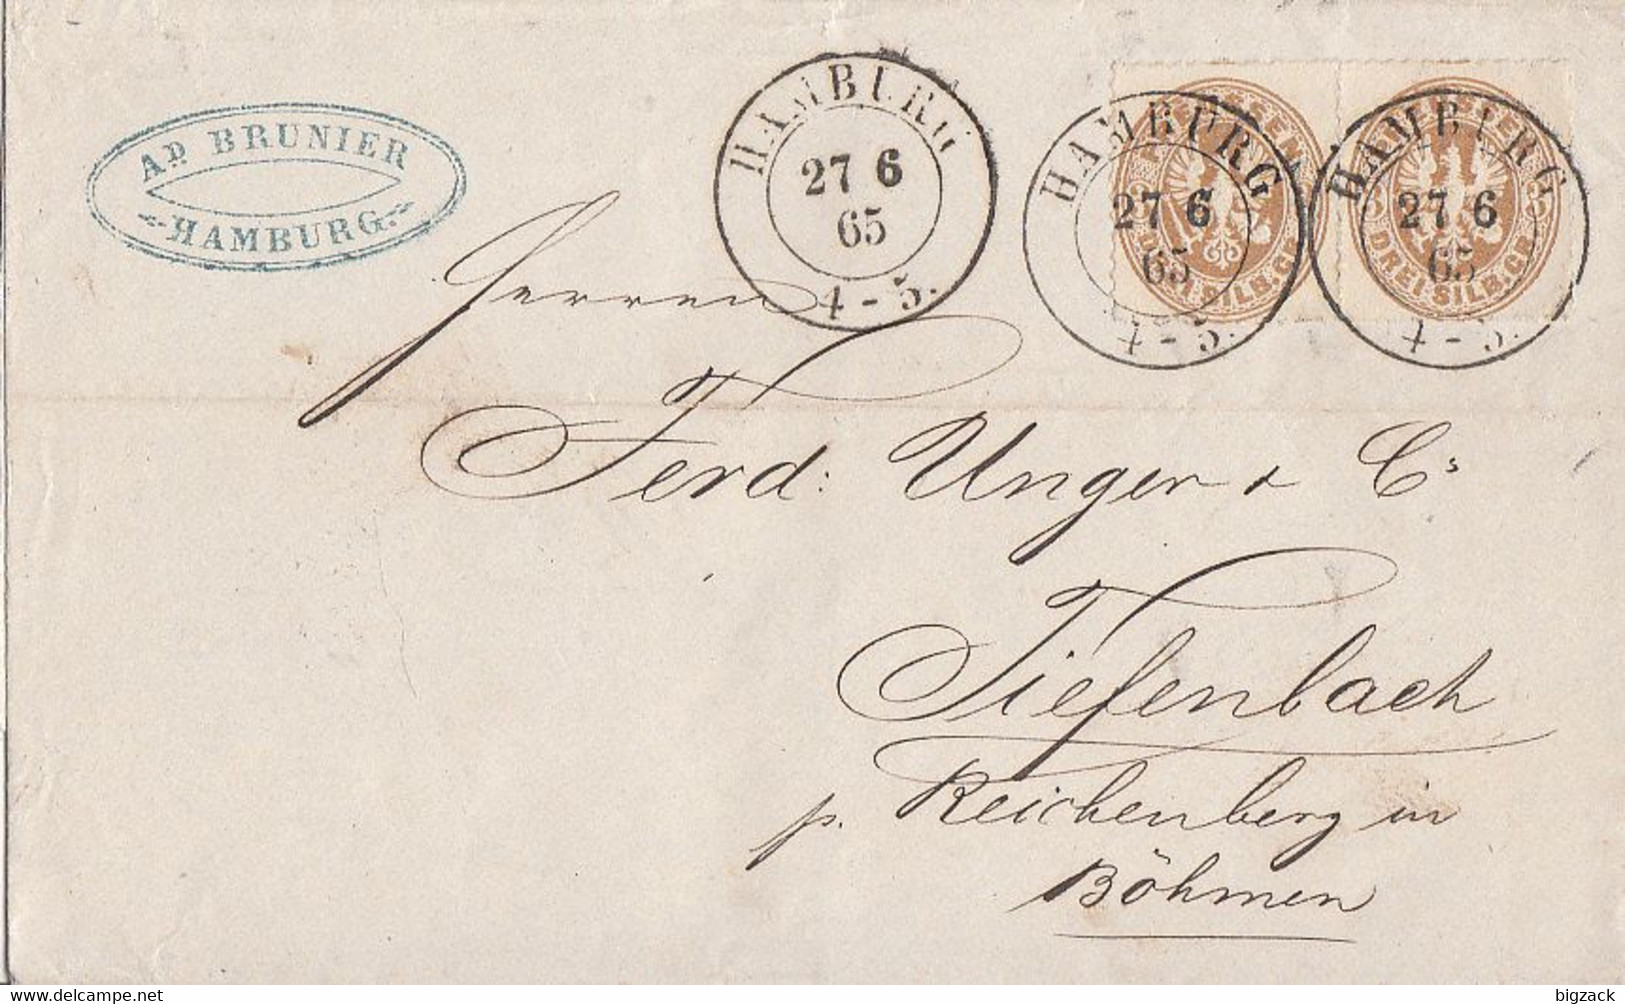 AD. BRUNIER
HAMBURG.
HAMBURG
27 6
65
4 - 5.
HAMBURG
27 6
65
4 - 5.
HAMBURG
27 6
65
4 - 5.
PREUSSEN
3 3
DREI SILB. GR.
PREUSSEN
3 3
DREI SILB. GR.
Herren
Ferd: Unger & Cs
Tiefenbach
p. Reichenberg in
Böhmen
bigzack